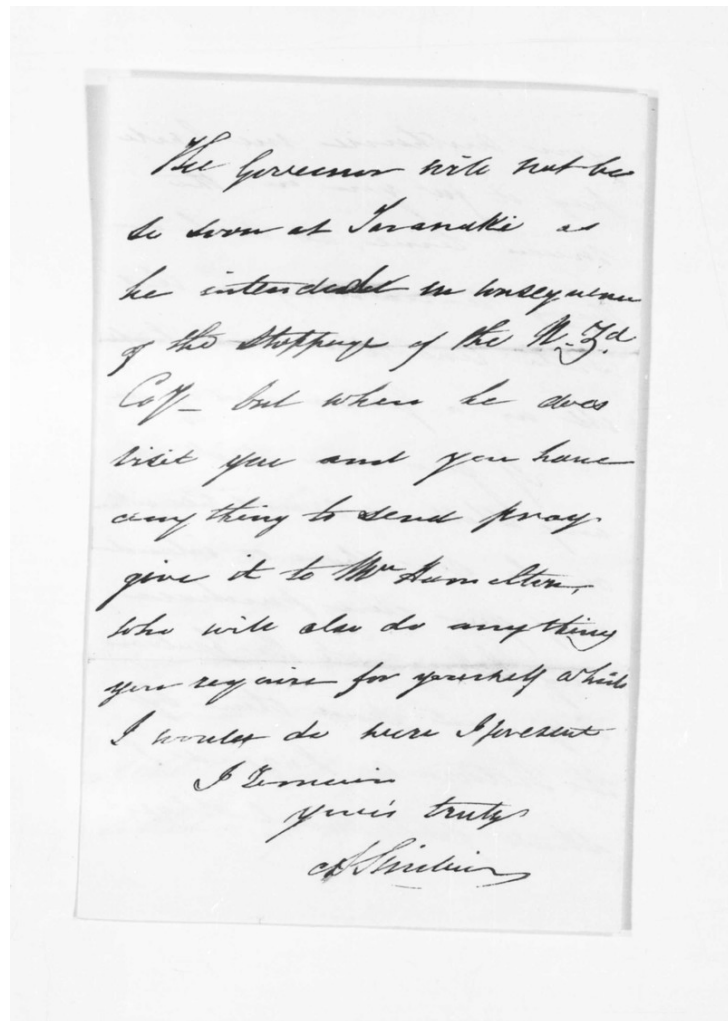 The Governor will not be
so soon at Taranaki as
he intended in consequence
of the stoppage of the N. Zd
Coy_ but when he does
visit you and you have
anything to send pray
give it to Mr Hamilton,
who will also do anything
you require for yourself which
I would do were I present
I remain
yours truly
A Sinclair